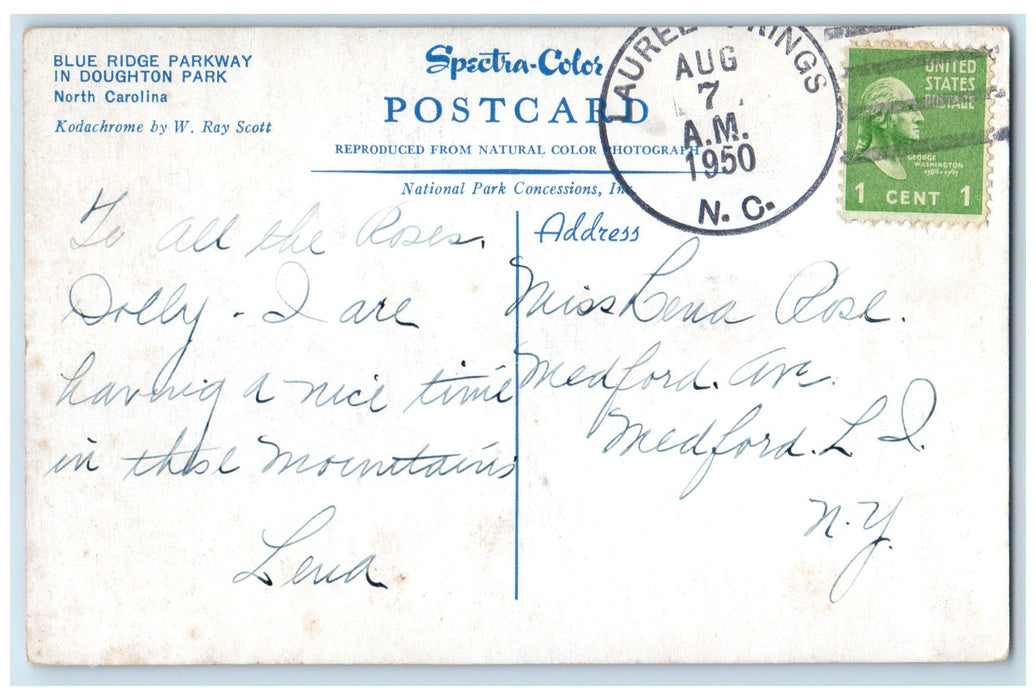 BLUE RIDGE PARKWAY
IN DOUGHTON PARK
North Carolina
Kodachrome by W. Ray Scott
Spectra-Color
POSTCARD
REPRODUCED FROM NATURAL COLOR PHOTOGRAPH
National Park Concessions, Inc.
LAUREL SPRINGS
AUG
7
A.M.
1950
N. C.
UNITED
STATES
POSTAGE
GEORGE
WASHINGTON
1789-1797
1 CENT 1
To all the Roses.
Dolly - I are
having a nice time
in these Mountains
Lena
Address
Miss Lena Rose.
Medford. Ave.
Medford. L I.
N.Y.